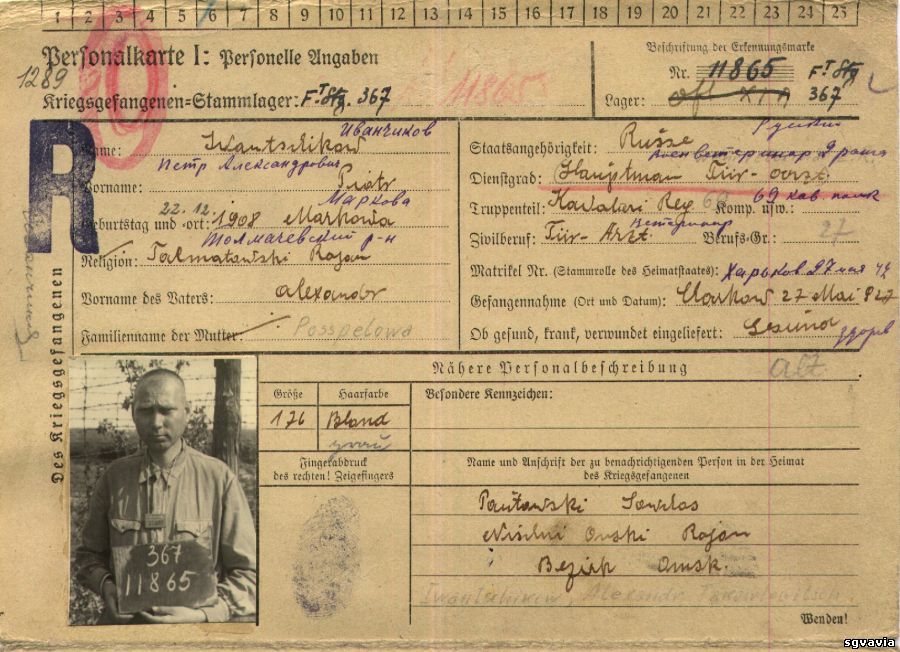 1 2 3 4 5 6 7 8 9 10 11 12 13 14 15 16 17 18 19 20 21 22 23 24 25
Personalkarte I: Personelle Angaben
1289
Kriegsgefangenen=Stammlager: 367
11865
Beschriftung der Erkennungsmarke
Nr. 11865
Lager: 367
R
Des Kriegsgefangenen
Иванчиков
Name: Iwantschikow
Петр Александрович
Vorname: Piotr
Маркова
22.12
Geburtstag und -ort: 1908 Markowa
Толмачевский р-н
Religion: Talmatowski Rajon
Vorname des Vaters: Alexandr
Familienname der Mutter: Posspelowa
Русский
Staatsangehörigkeit: Russe
военветеринар ранга
Dienstgrad: Hauptman Tür-arzt
69 кав. полк
Truppenteil: Kavaleri Reg 69 Komp. usw.:
Ветеринар
Zivilberuf: Tür-Arzt Berufs-Gr.: 27
Matrikel Nr. (Stammrolle des Heimatstaates): Харьков 27 мая 42
Gefangennahme (Ort und Datum): Charkow 27 Mai
Ob gesund, krank, verwundet eingeliefert: Gesund
здоров
Nähere Personalbeschreibung
Größe
Haarfarbe
Besondere Kennzeichen:
176
Blond
grau
Fingerabdruck
des rechten! Zeigefingers
Name und Anschrift der zu benachrichtigenden Person in der Heimat
des Kriegsgefangenen
Rajon
Bezirk Omsk.
Iwantschikow, Alexandr
Wenden!
367
11865
sgvavia